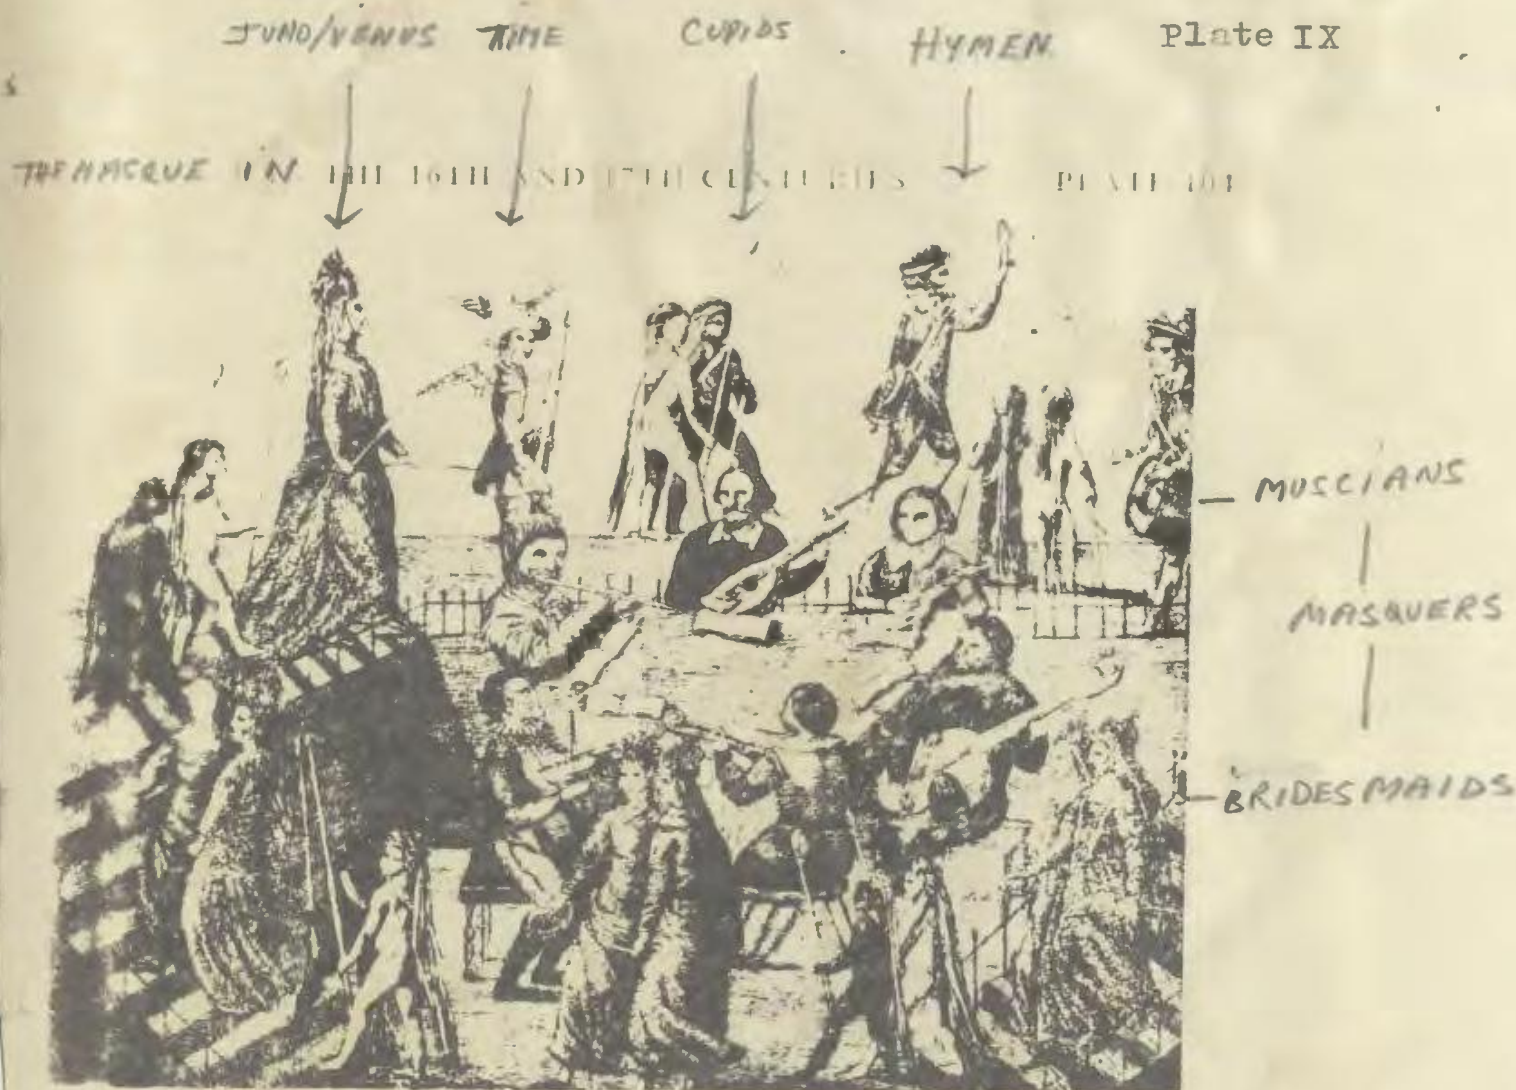 JUNO/VENUS TIME CUPIDS HYMEN Plate IX
THE MASQUE IN THE 16TH AND 17TH CENTURIES PLATE 101
MUSCIANS
MASQUERS
BRIDESMAIDS